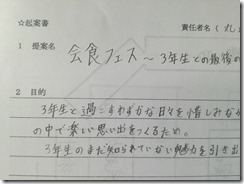 ☆起案書
責任者名(
1 提案名
会食フェス～3年生との最後の
2 目的
3年生と過ごすわずかな日々を惜しみなが
の中で楽しい思い出をつくるため。
3年生のまだ知られていない魅力を引き出